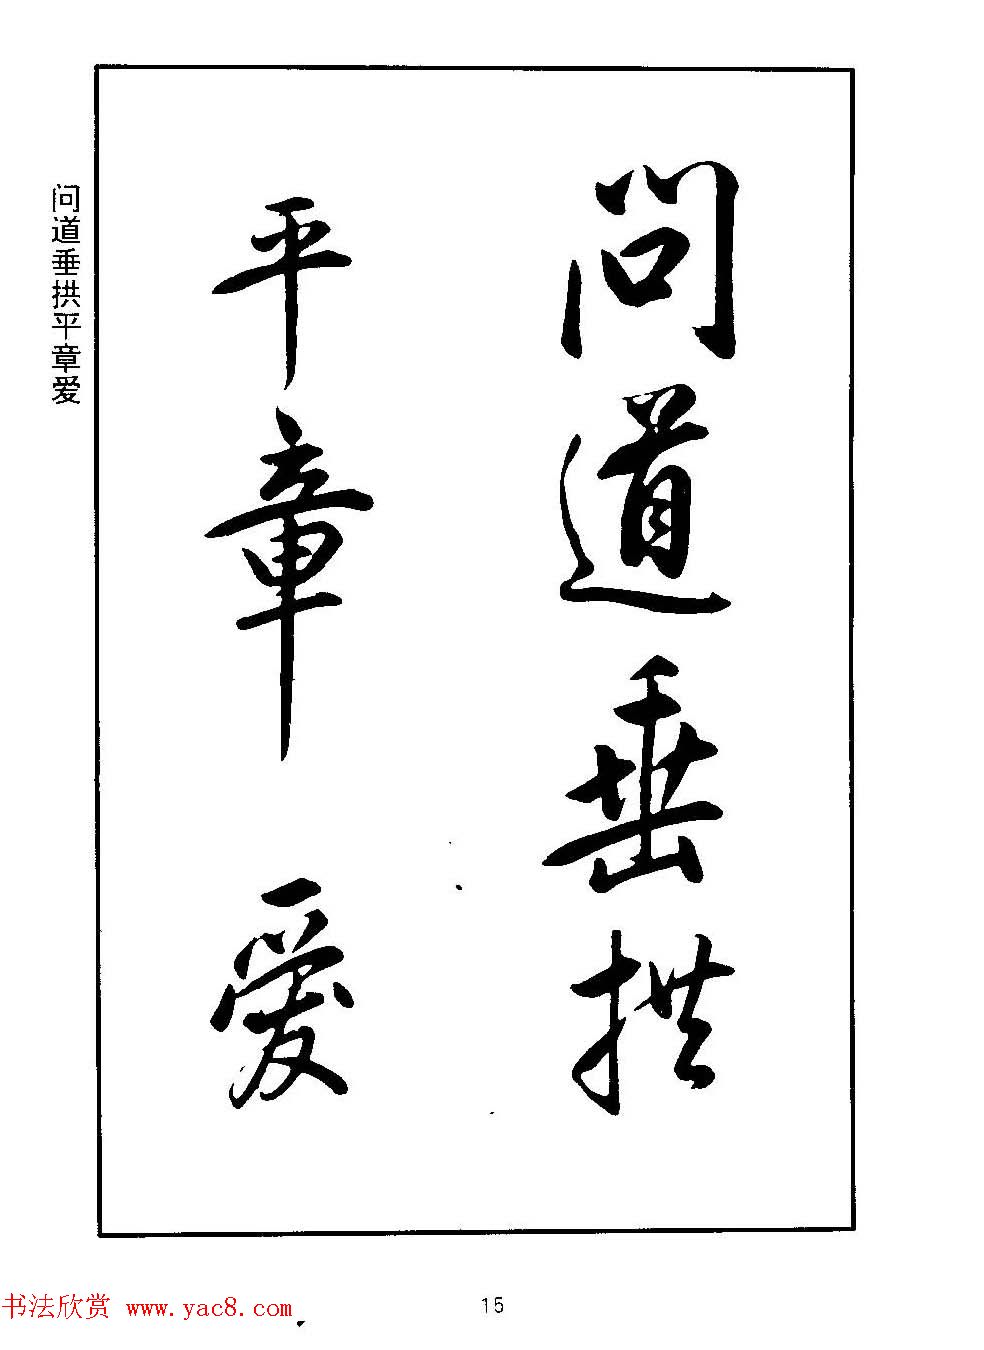 問道垂拱
平章愛
问道垂拱平章爱
书法欣赏 www.yac8.com
15